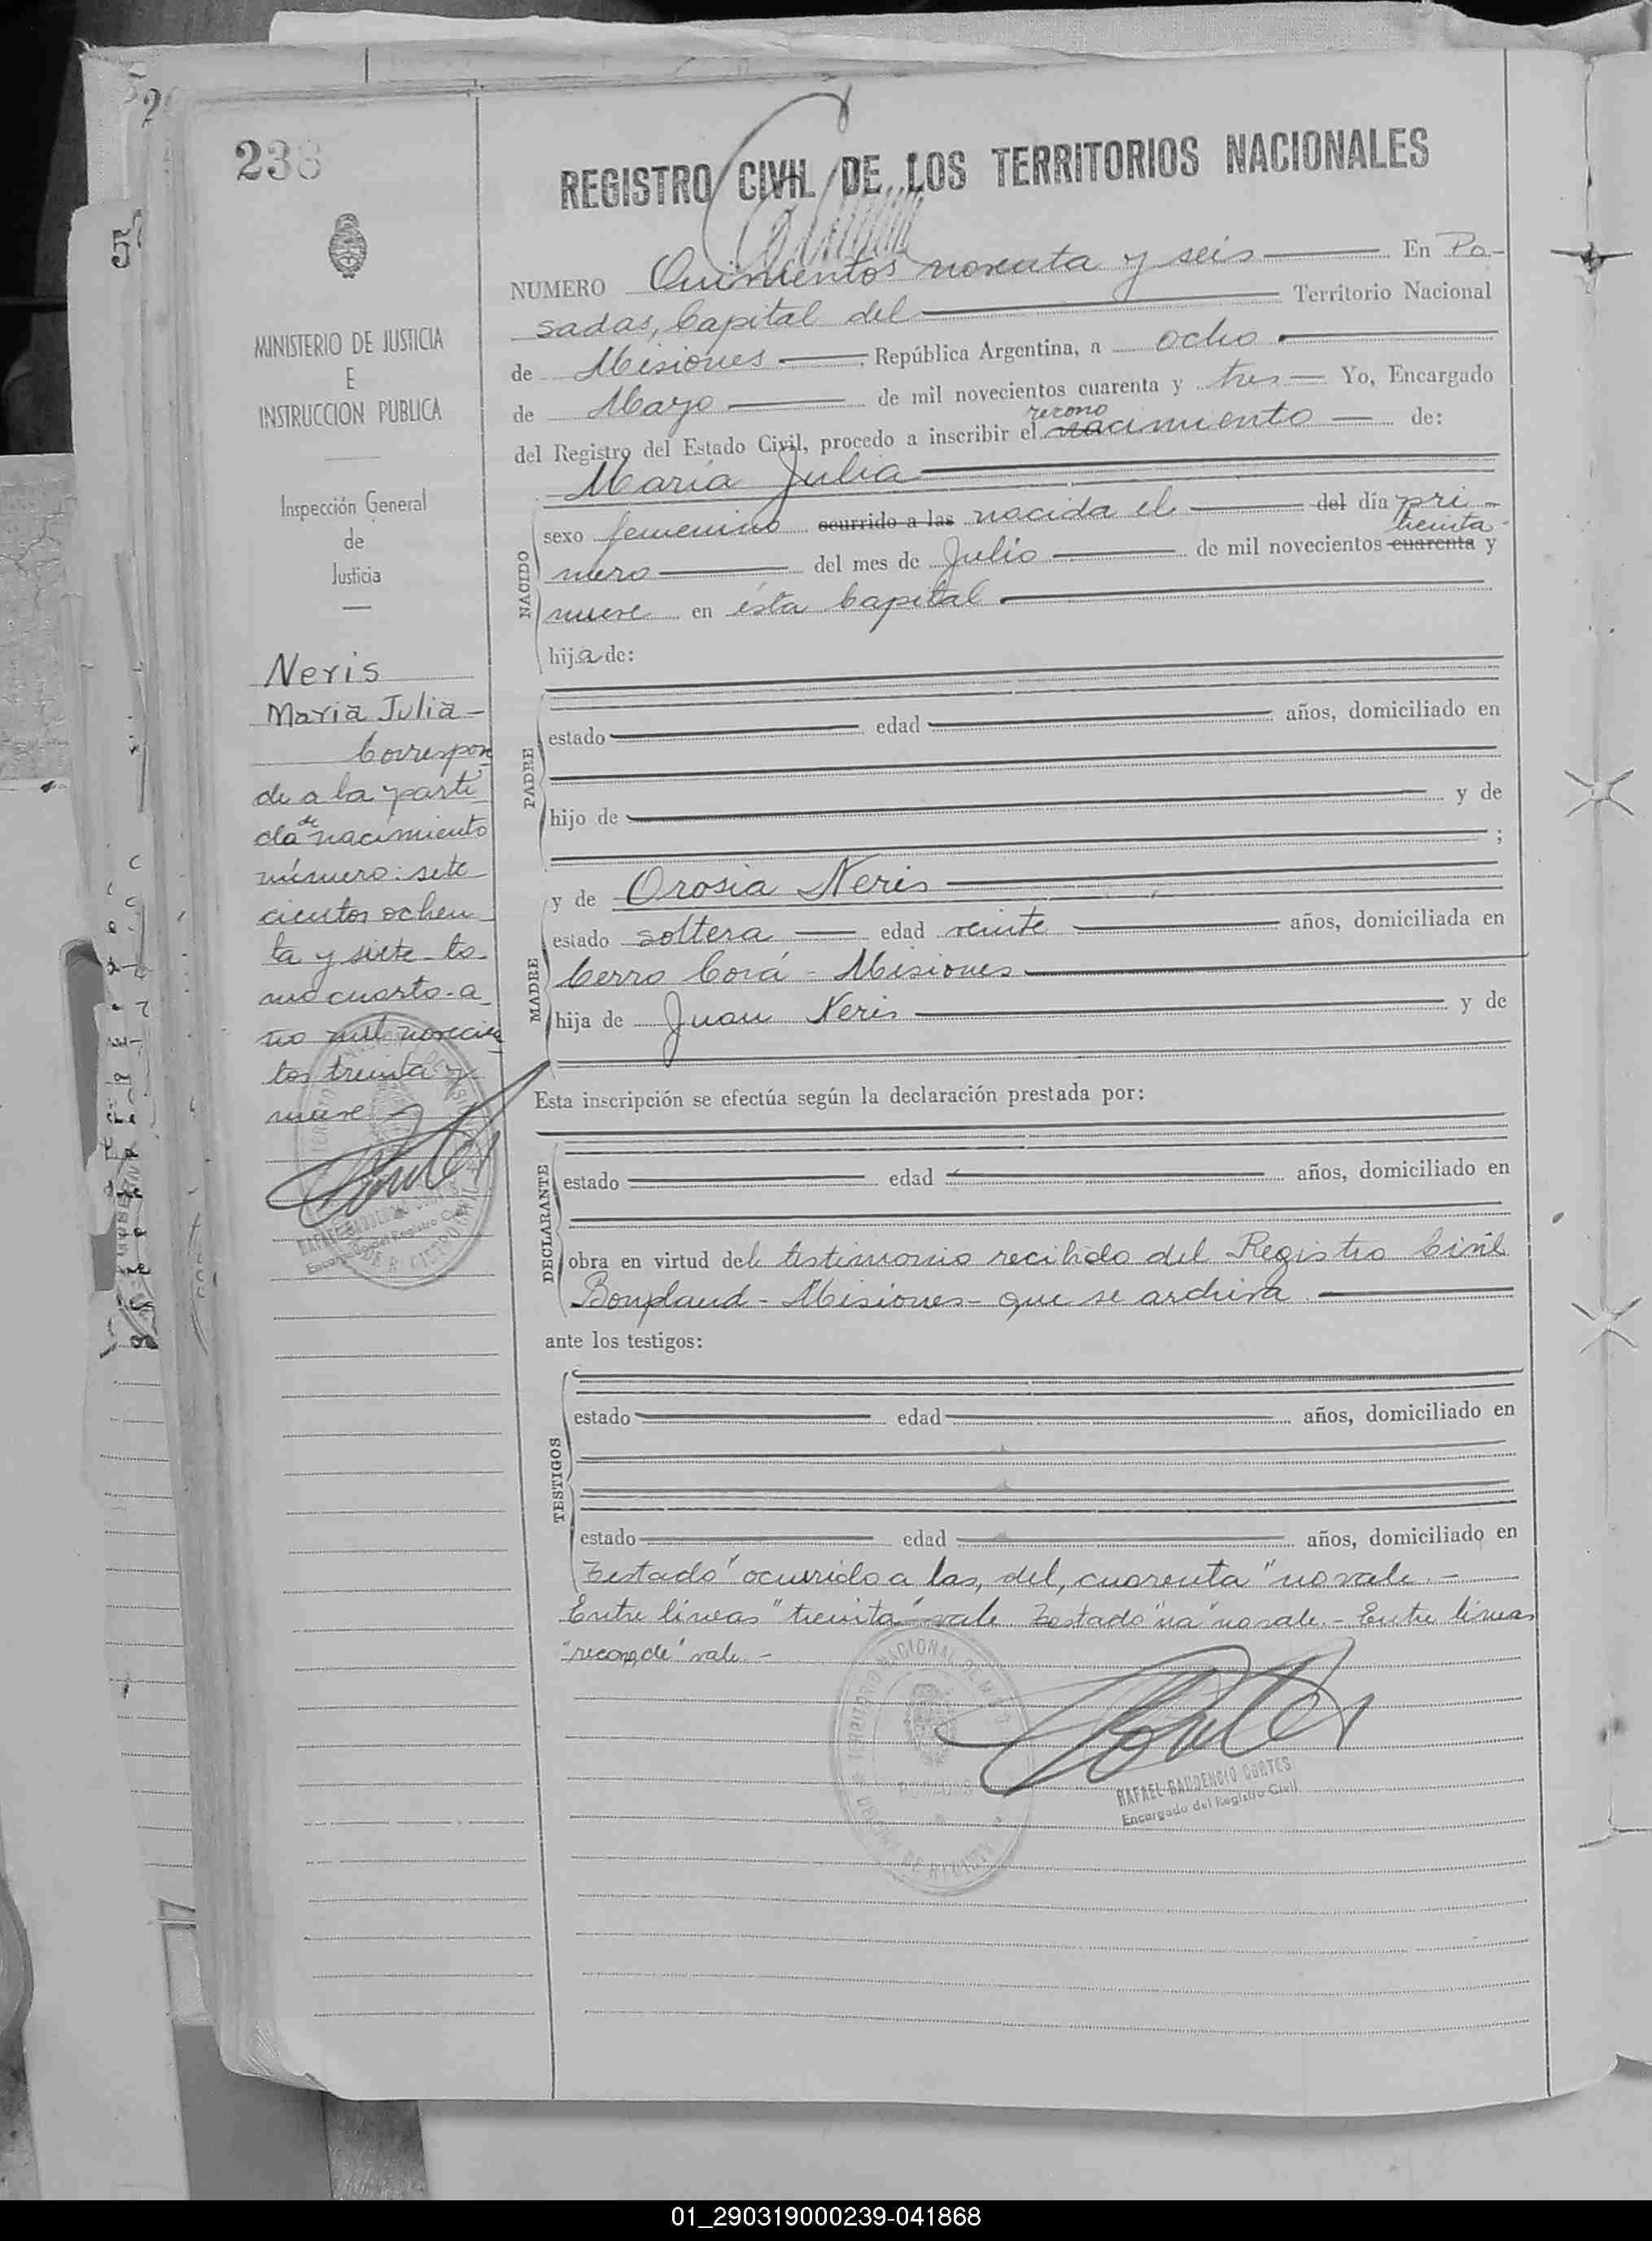 238
MINISTERIO DE JUSTICIA
E
INSTRUCCION PUBLICA
Inspección General
de
Justicia
Neris
Maria Julia -
Correspon
de a la parti
da de nacimiento
número: sete
cientos ochen
ta y siete - to-
mo cuarto - a
ño mil novecien
tos treinta y
nueve
RAFAEL GAUDENCIO CORTES
Encargado del Registro Civil
REGISTRO CIVIL DE LOS TERRITORIOS NACIONALES
NUMERO Quinientos noventa y seis En Po-
sadas, Capital del Territorio Nacional
de Misiones República Argentina, a ocho
de Mayo de mil novecientos cuarenta y tres Yo, Encargado
recono
del Registro del Estado Civil, procedo a inscribir el nacimiento de:
María Julia
NACIDO
sexo femenino ocurrido a las nacida el del día pri-
treinta
mero del mes de Julio de mil novecientos cuarenta y
nueve en ésta Capital
hija de:
PADRE
estado edad años, domiciliado en
hijo de y de
;
MADRE
y de Orosia Neris
estado soltera edad veinte años, domiciliada en
Cerro Corá - Misiones
hija de Juan Neris y de
Esta inscripción se efectúa según la declaración prestada por:
DECLARANTE
estado edad años, domiciliado en
obra en virtud del testimonio recibido del Registro Civil
Bonpland - Misiones - que se archiva
ante los testigos:
TESTIGOS
estado edad años, domiciliado en
estado edad años, domiciliado en
Testado "ocurrido a las, del, cuarenta" no vale. -
Entre lineas "treinta" vale Testado "na" no vale. - Entre lineas
"recono, de" vale. -
TERRITORIO NACIONAL DE
POSADAS
RAFAEL GAUDENCIO CORTES
Encargado del Registro Civil
01_290319000239-041868